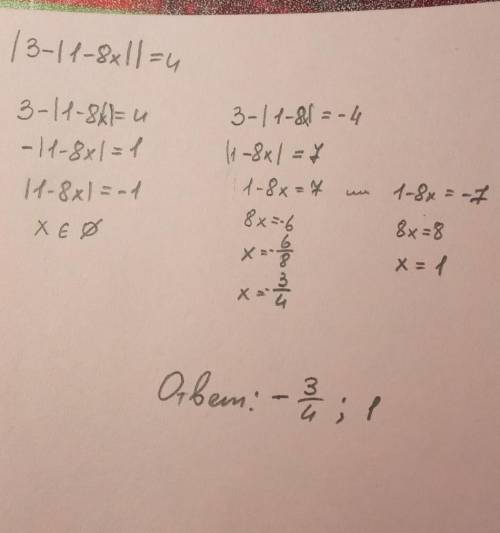 |3-|1-8x||=4
3-|1-8x|=4
-|1-8x|=1
|1-8x|=-1
x ∈ ∅
3-|1-8x|=-4
|1-8x|=7
1-8x=7 или 1-8x=-7
8x=-6
x=-6/8
x=-3/4
8x=8
x=1
Ответ: -3/4; 1